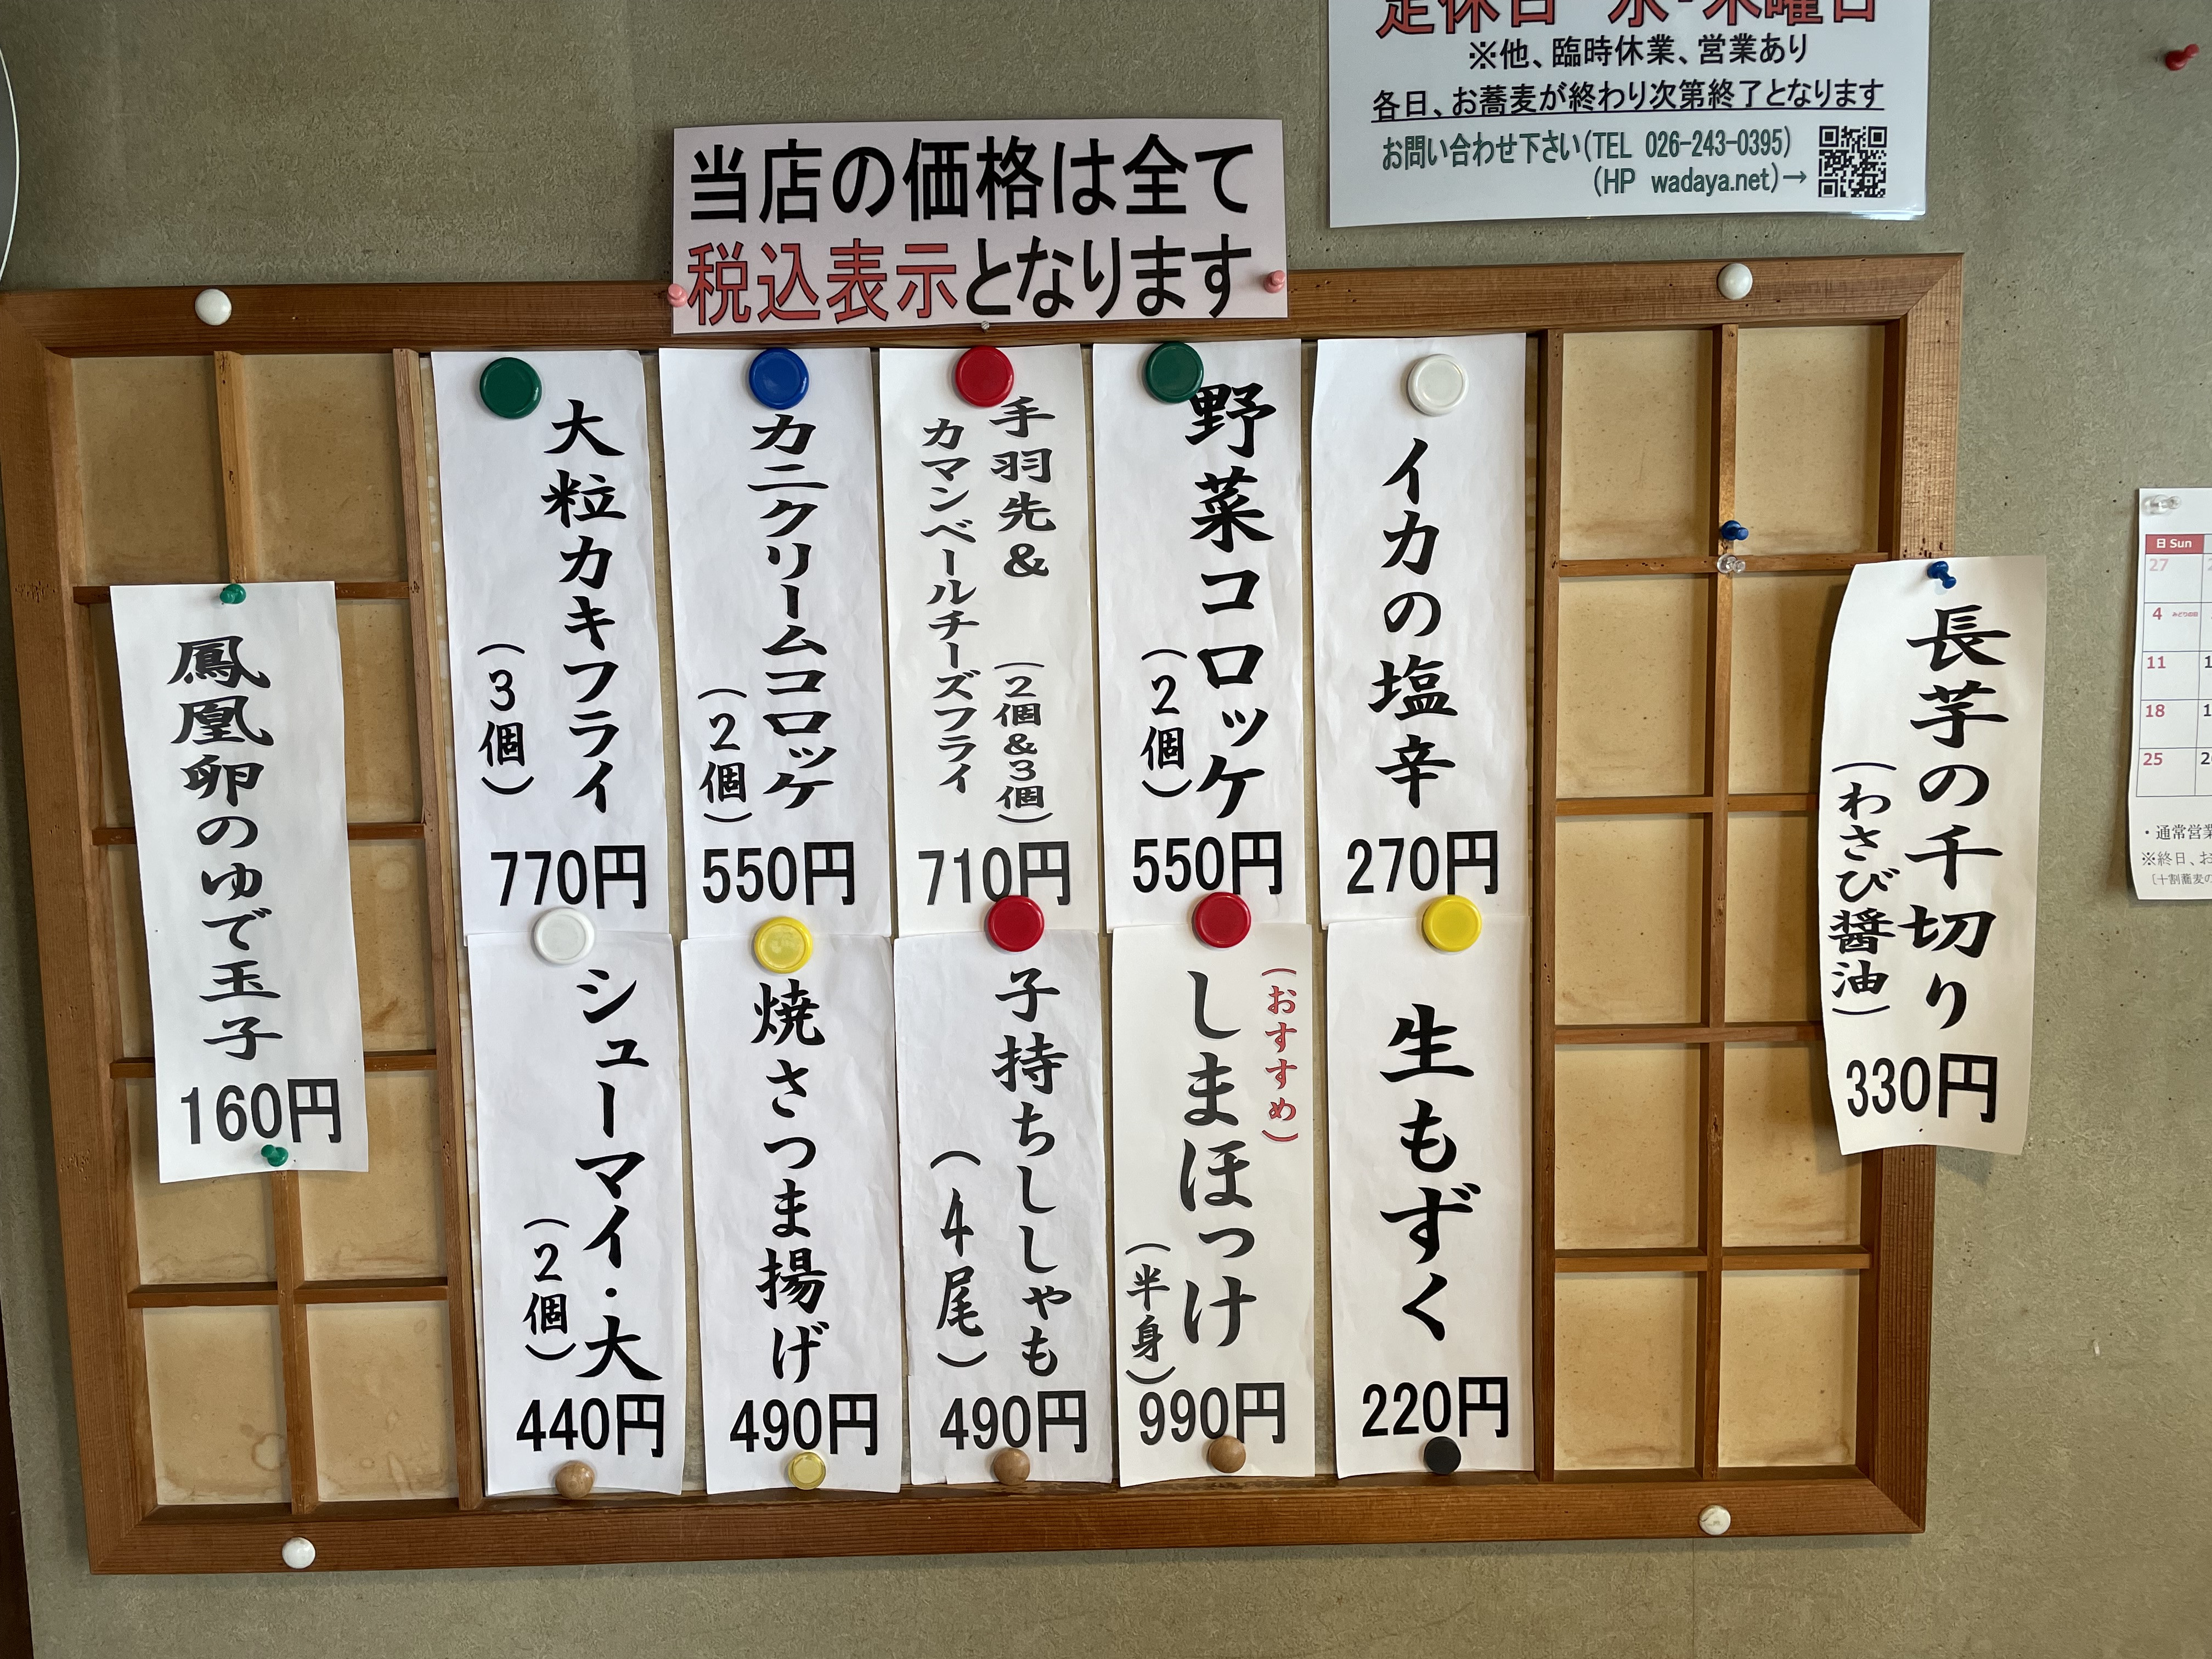 定休日 水・木曜日
※他、臨時休業、営業あり
各日、お蕎麦が終わり次第終了となります
お問い合わせ下さい(TEL 026-243-0395)
(HP wadaya.net)→
当店の価格は全て
税込表示となります
長芋の千切り
(わさび醤油)
330円
イカの塩辛
270円
野菜コロッケ
(2個)
550円
手羽先&
カマンベールチーズフライ
(2個&3個)
710円
カニクリームコロッケ
(2個)
550円
大粒カキフライ
(3個)
770円
生もずく
220円
(おすすめ)
しまほっけ
(半身)
990円
子持ちししゃも
(4尾)
490円
焼さつま揚げ
490円
シューマイ・大
(2個)
440円
鳳凰卵のゆで玉子
160円
日 Sun
27
4
11
18
25
・通常営業
※終日、お
〔十割蕎麦の